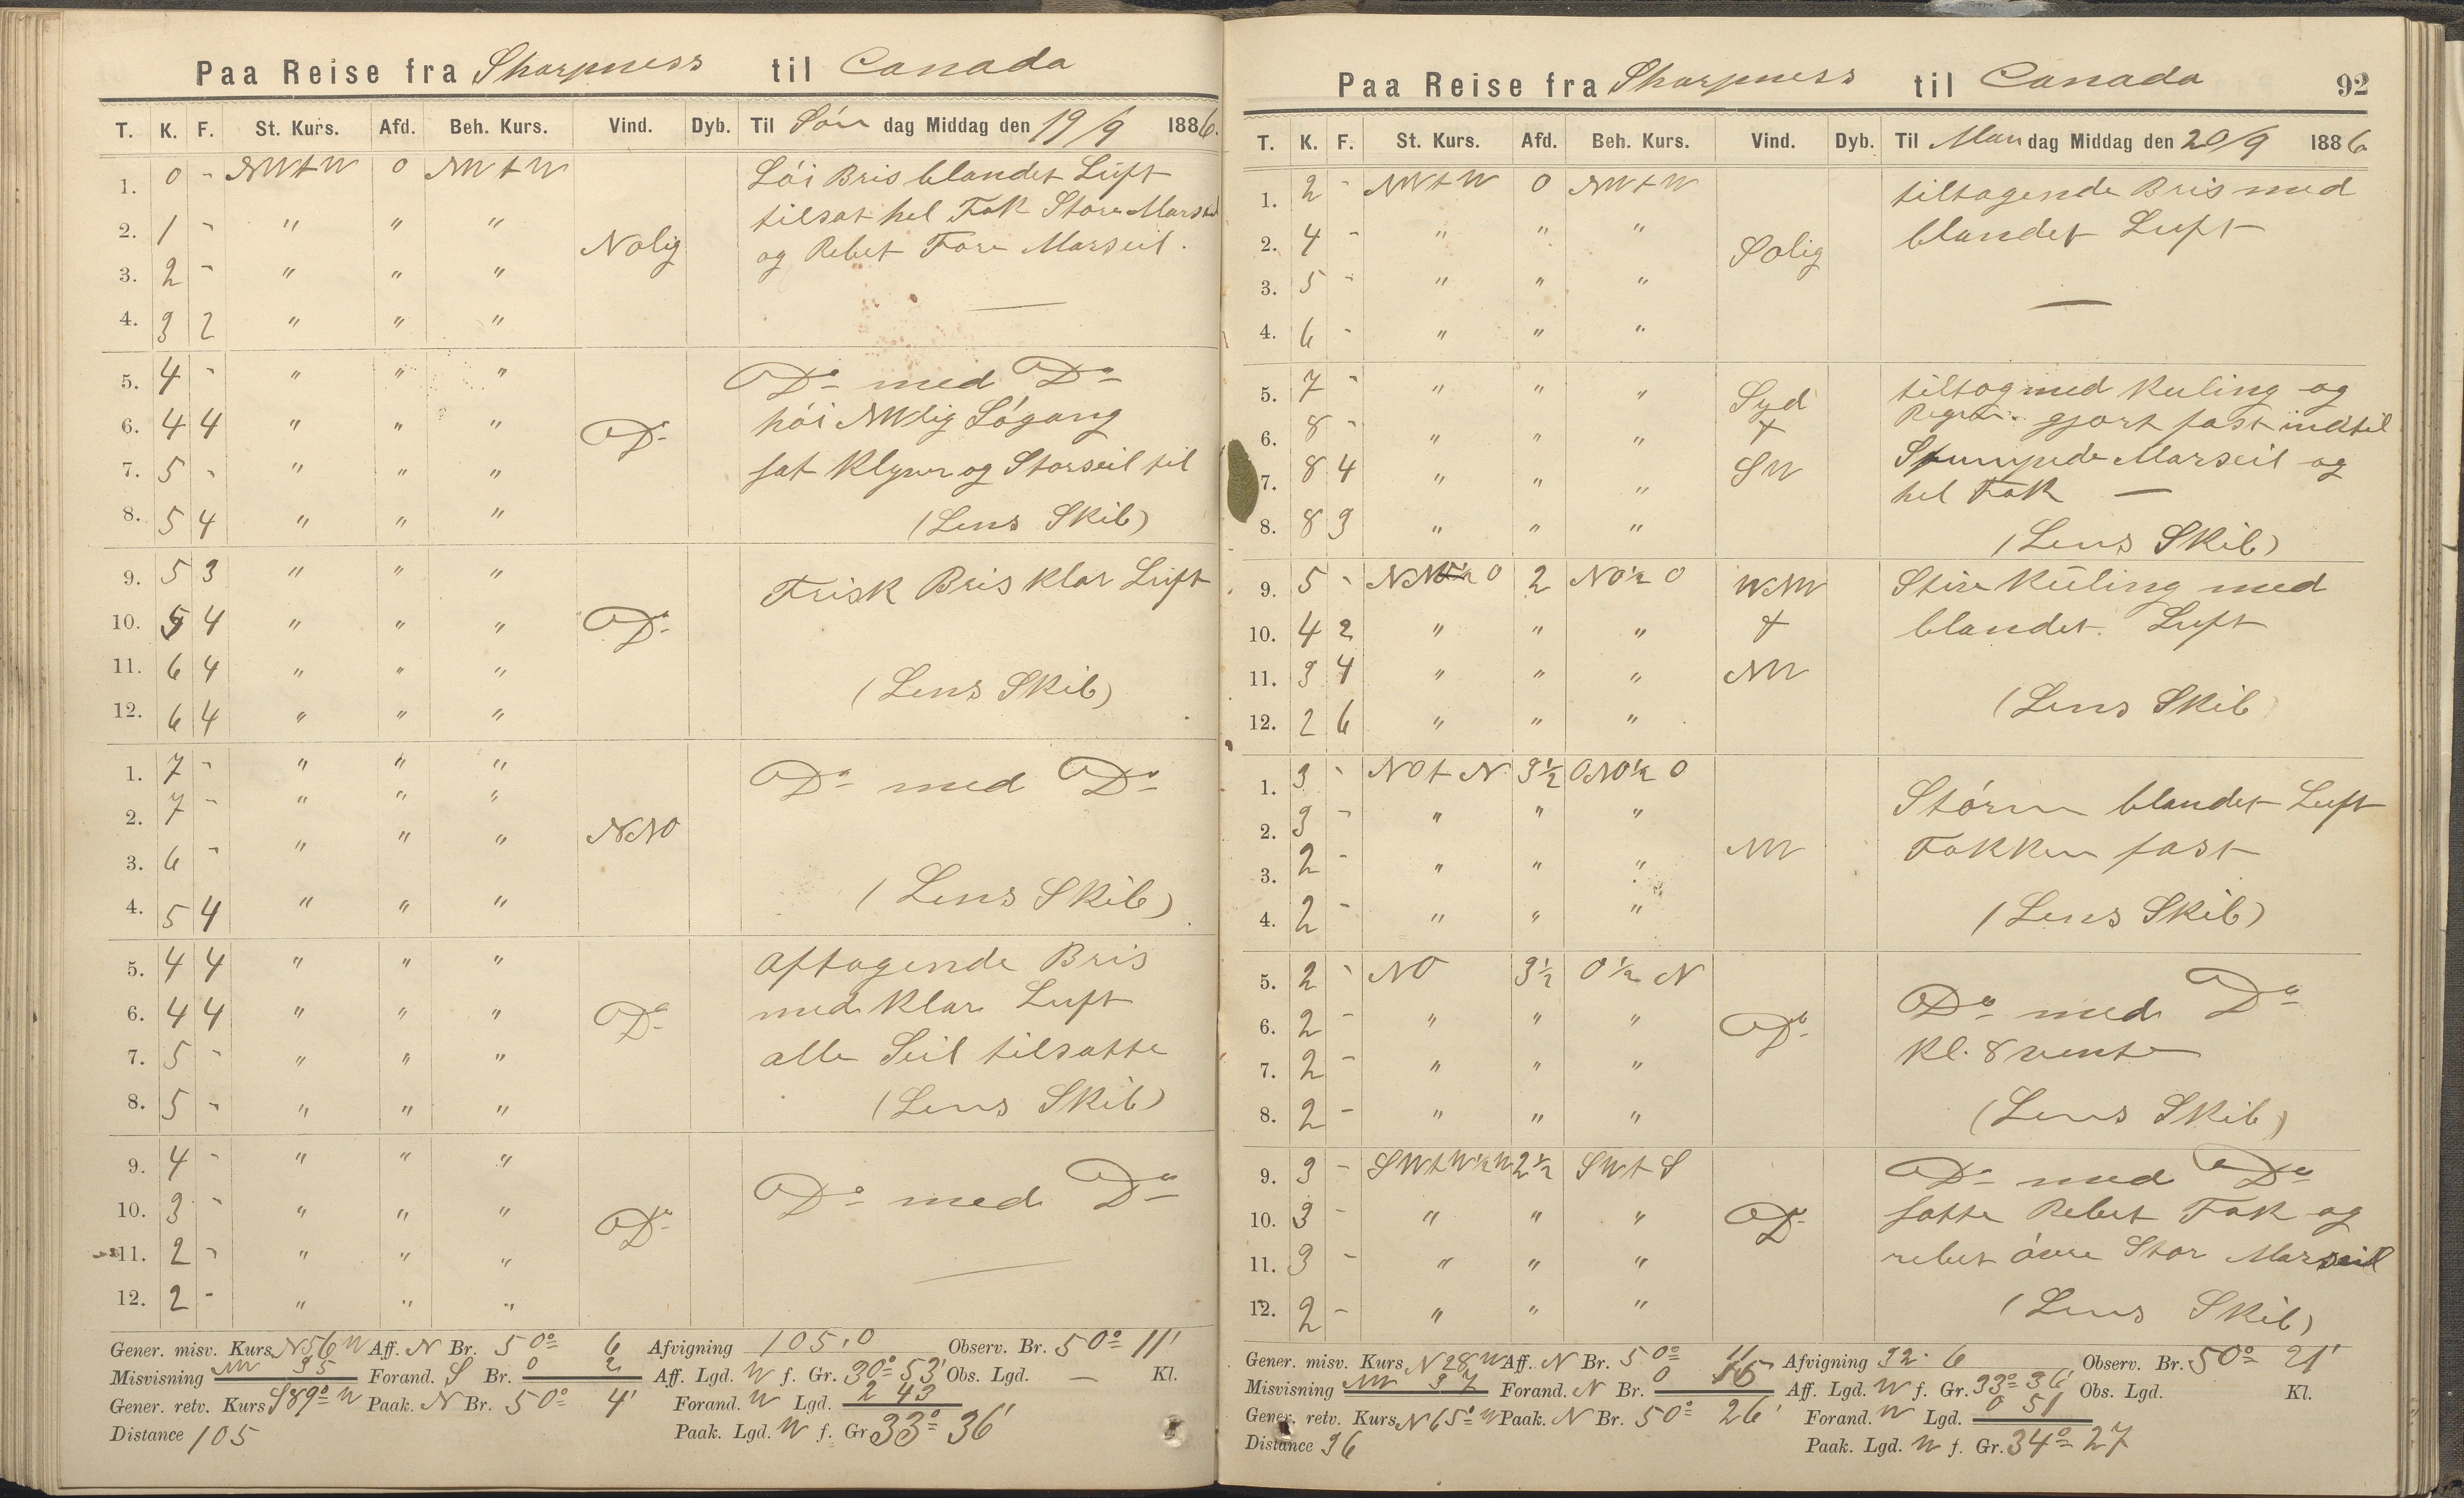 Paa Reise fra Sharpness til Canada
T. K. F. St. Kurs. Afd. Beh. Kurs. Vind. Dyb. Til Søn dag Middag den 19/9 1886.
1. 0 - NWtW 0 NWtW Løi Bris blandet Luft
2. 1 - " " " tilsat hel Fok Store Marseil
Nolig og Rebet Fore Marseil.
3. 2 - " " "
4. 3 2 " " "
5. 4 - " " " Do med Do
6. 4 4 " " " Do høi NWlig Søgang
7. 5 - " " " sat Klyver og Storseil til
8. 5 4 " " " (Lens Skib)
9. 5 3 " " " Frisk Bris klar Luft
10. 5 4 " " " Do
11. 6 4 " " " (Lens Skib)
12. 6 4 " " "
1. 7 - " " " Do med Do
2. 7 - " " " NNO
3. 6 - " " "
4. 5 4 " " " (Lens Skib)
5. 4 4 " " " aftagende Bris
6. 4 4 " " " Do med klar Luft
7. 5 - " " " alle Seil tilsatte
8. 5 - " " " (Lens Skib)
9. 4 - " " " Do med Do
10. 3 - " " " Do
11. 2 - " " "
12. 2 - " " "
Gener. misv. Kurs N56W Aff. N Br. 50° 6 Afvigning 105,0 Observ. Br. 50° 11'
Misvisning NW 35 Forand. S Br. 0 2 Aff. Lgd. W f. Gr. 30° 53' Obs. Lgd. — Kl.
Gener. retv. Kurs S89° W Paak. N Br. 50° 4' Forand. W Lgd. 2 43
Distance 105 Paak. Lgd. W f. Gr. 33° 36'
Paa Reise fra Sharpness til Canada 92
T. K. F. St. Kurs. Afd. Beh. Kurs. Vind. Dyb. Til Man dag Middag den 20/9 1886
1. 2 - NWtW 0 NWtW tiltagende Bris med
2. 4 - " " " Solig blandet Luft
3. 5 - " " "
4. 6 - " " "
5. 7 - " " " Syd tiltog med Kuling og
6. 8 - " " " t Regn gjort fast indtil
7. 8 4 " " " SW Marseil og
hel Fok —
8. 8 3 " " " (Lens Skib)
9. 5 - 2 NO½ O WNW Stive Kuling med
10. 4 2 " " " t blandet Luft
11. 3 4 " " " NW
12. 2 6 " " " (Lens Skib)
1. 3 - NOtN 3½ ONO½ O
2. 3 - " " " Storm blandet Luft
3. 2 - " " " NW Fokken fast
4. 2 - " " " (Lens Skib)
5. 2 - NO 3½ O½ N
6. 2 - " " " Do Do med Do
7. 2 - " " " Kl. 8 vente
8. 2 - " " " (Lens Skib)
9. 3 - SWtW½W 2½ SWtS Do med Do
10. 3 - " " " Do satte Rebet Fok og
11. 3 - " " " rebet øvre Stor Marseil
12. 2 - " " " (Lens Skib)
Gener. misv. Kurs N28W Aff. N Br. 50° 11 Afvigning 32.6 Observ. Br. 50° 21'
Misvisning NW 37 Forand. N Br. 0 15 Aff. Lgd. W f. Gr. 33° 36' Obs. Lgd. Kl.
Gener. retv. Kurs N65° W Paak. N Br. 50° 26' Forand. W Lgd. 0 51
Distance 36 Paak. Lgd. W f. Gr. 34° 27